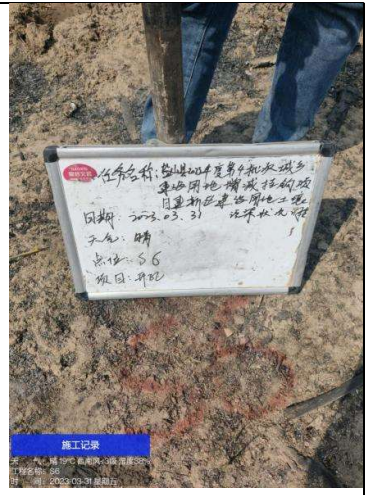 任务名称：盐山县2021年度第9批次城乡
建设用地增减挂钩项
目建新区建设用地土壤
日期：2023.03.31 污染状况
天气：晴
点位：S6
项目：开孔
施工记录
天 气：晴 19℃ 西南风≤3级 湿度38%
工程名称：S6
时 间：2023-03-31 星期五